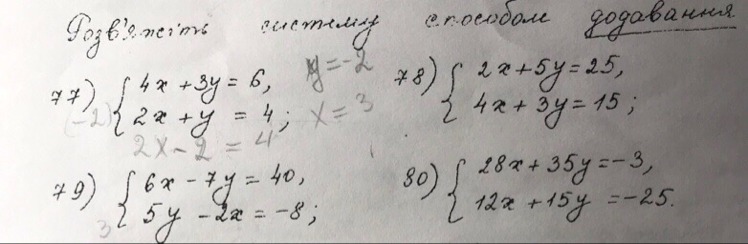 Розв'яжіть систему способом додавання
77) { 4x + 3y = 6, y = -2
(-2) { 2x + y = 4; x = 3
2x - 2 = 4
78) { 2x + 5y = 25,
4x + 3y = 15;
79) { 6x - 7y = 40,
3 { 5y - 2x = -8;
80) { 28x + 35y = -3,
12x + 15y = -25.